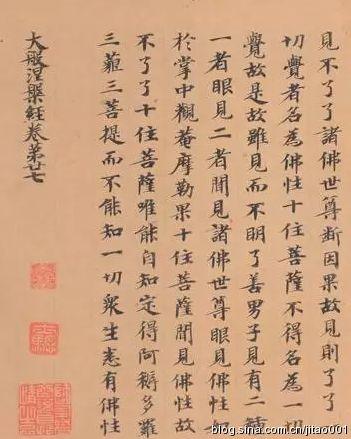 見不了了諸佛世尊斷因果故見則了了
切覺者名為佛性十住菩薩不得名為一
覺故是故雖見而不明了善男子見有二種
一者眼見二者聞見諸佛世尊眼見佛性
於掌中觀菴摩勒果十住菩薩聞見佛性故
不了了十住菩薩唯能自知定得阿耨多羅
三藐三菩提而不能知一切眾生悉有佛性
大般涅槃經卷第廿七
blog.sina.com.cn/jitao001